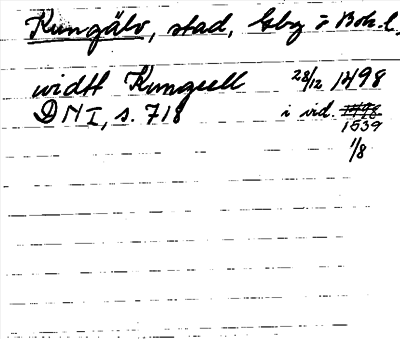 Kungälv, stad, Gbg o Boh. l.
widtt Kunguell 28/12 1498
DN I, s. 718 i vid. 1498
1539
1/8